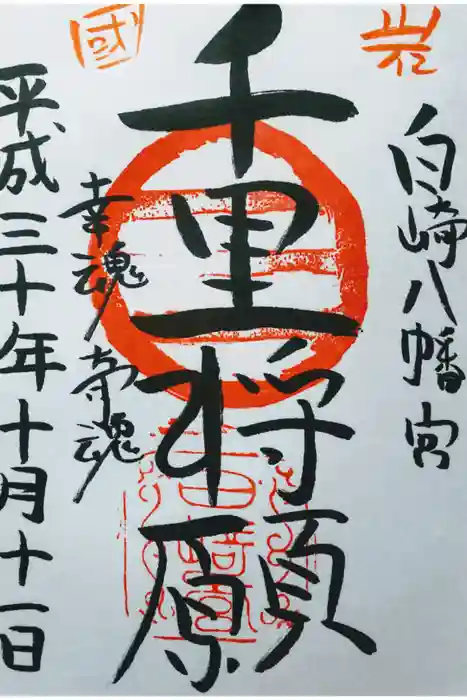 岩
國
白崎八幡宮
千里将願
幸魂奇魂
平成三十年十月十一日